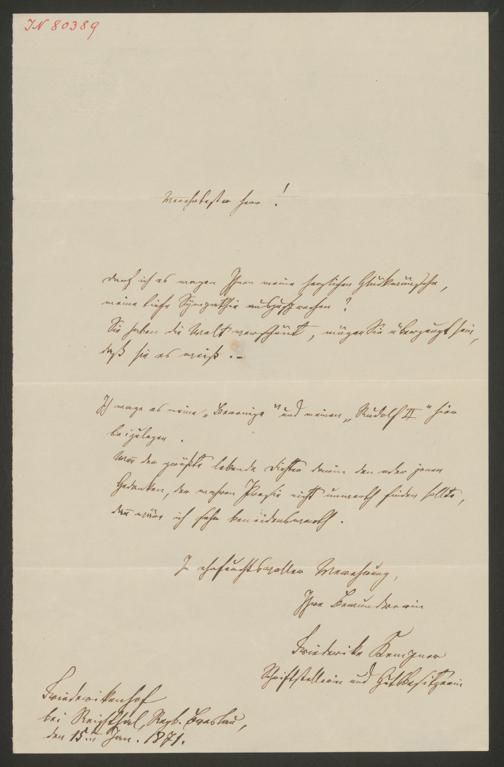 IN 80389
Verehrtester Herr!
Darf ich es wagen Ihnen meine herzlichen Glückwünsche,
meine tiefe Sympathie auszusprechen?
Sie haben die Welt verschönt, mögen Sie überzeugt sein,
daß sie es weiß. –
Ich wage es meine „Berenize" und meinen „Rudolf II" hier
beizulegen.
Wenn der größte lebende Dichter darin den oder jenen
Gedanken, der wahren Poesie nicht unwerth finden sollte,
dann wäre ich sehr beneidenswerth.
In ehrfurchtsvoller Verehrung,
Ihre Bewunderin
Friederike Kempner
Schriftstellerin und Gutsbesitzerin
Friederikenhof
bei Reichthal, Regb. Breslau,
den 15ten Jan. 1871.